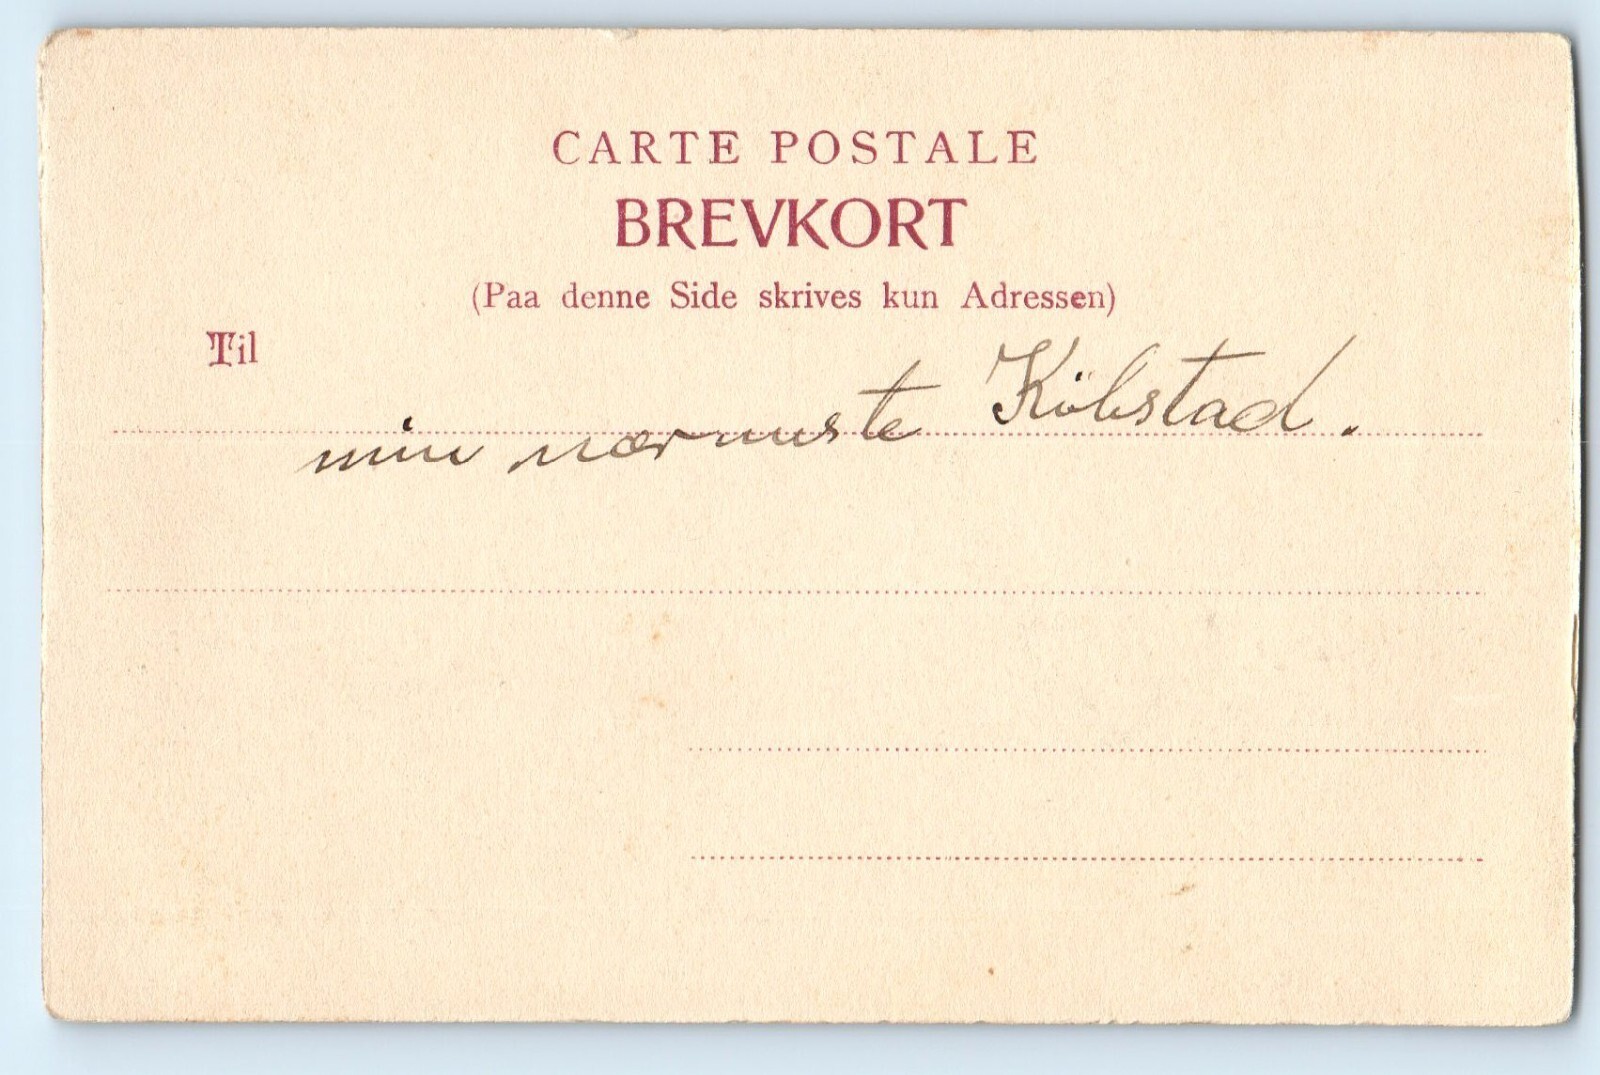 CARTE POSTALE
BREVKORT
(Paa denne Side skrives kun Adressen)
Til
min nærmeste Köbstad.